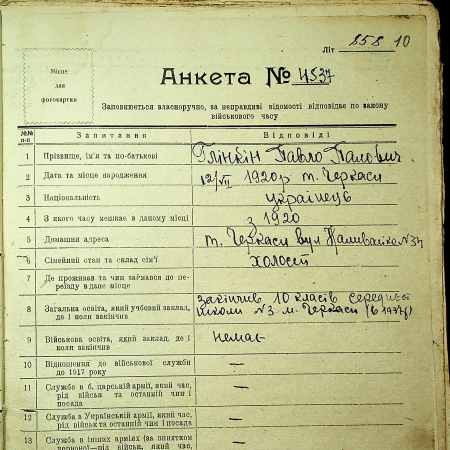 Літ 858 10
Місце
для
фотокартки
Анкета № 4537
Заповнюється власноручно, за неправдиві відомості відповідає по закону
військового часу
№№
п-п
Запитання
Відповіді
1 Прізвище, ім'я та по-батькові Глінкін Павло Палович
2 Дата та місце народження 12/VII 1920р м. Черкаси
3 Національність українець
4 З якого часу мешкає в даному місці з 1920
5 Домашня адреса м. Черкаси вул Наливайко №
6 Сімейний стан та склад сім'ї холост
7 Де проживав та чим займався до пе-
реїзду в дане місце
8 Загальна освіта, який учбовий заклад,
де і коли закінчив
закінчив 10 класів середньої
школи №3 м. Черкаси (в 1937р)
9 Військова освіта, який заклад, де і
коли закінчив
немає
10 Відношення до військової служби
до 1917 року —
11 Служба в б. царській армії, який час,
рід військ та останній чин і
посада —
12 Служба в Українській армії, який час,
рід військ та останній чин і посада —
13 Служба в інших арміях (за винятком
червоної)—рід військ, який час, —